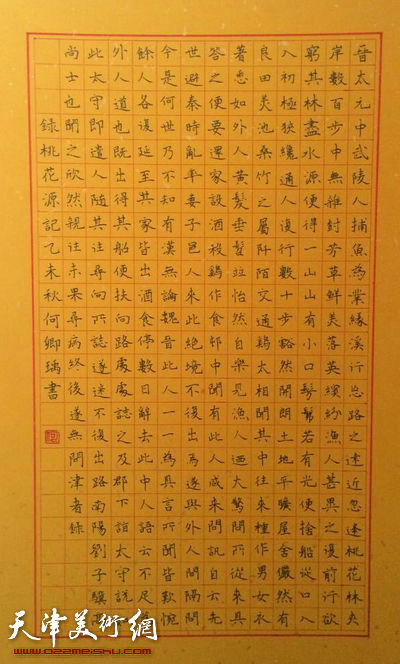 晉太元中武陵人捕魚為業緣溪行忘路之遠近忽逢桃花林夾
岸數百步中無雜樹芳草鮮美落英繽紛漁人甚異之復前行欲
窮其林盡水源便得一山山有小口髣髴若有光便捨船從口入
入初極狹纔通人復行數十步豁然開朗土地平曠屋舍儼然有
良田美池桑竹之屬阡陌交通鷄犬相聞其中往來種作男女衣
著悉如外人黃髮垂髫並怡然自樂見漁人迺大驚問所從來具
答之便要還家設酒殺鷄作食邨中聞有此人咸來問訊自云先
世避秦時亂率妻子邑人來此絕境不復出焉遂與外人間隔問
今是何世乃不知有漢無論魏晉此人一一為具言所聞皆歎惋
餘人各復延至其家皆出酒食停數日辭去此中人語云不足為
外人道也既出得其船便扶向路處處誌之及郡下詣太守說如
此太守即遣人隨其往尋向所誌遂迷不復出路南陽劉子驥高
尚士也聞之欣然親往未果尋病終後遂無問津者錄
錄桃花源記乙未秋何卿瑀書
天津美術網
www.022meishu.com